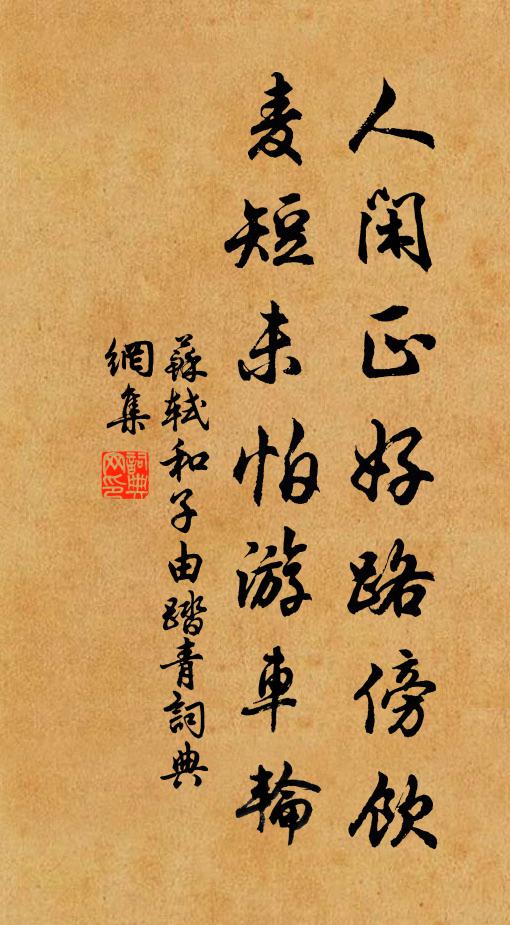 人閑正好路傍飲
麦短未怕游車輪
蘇軾和子由踏青詞典
網集
詞典
网印